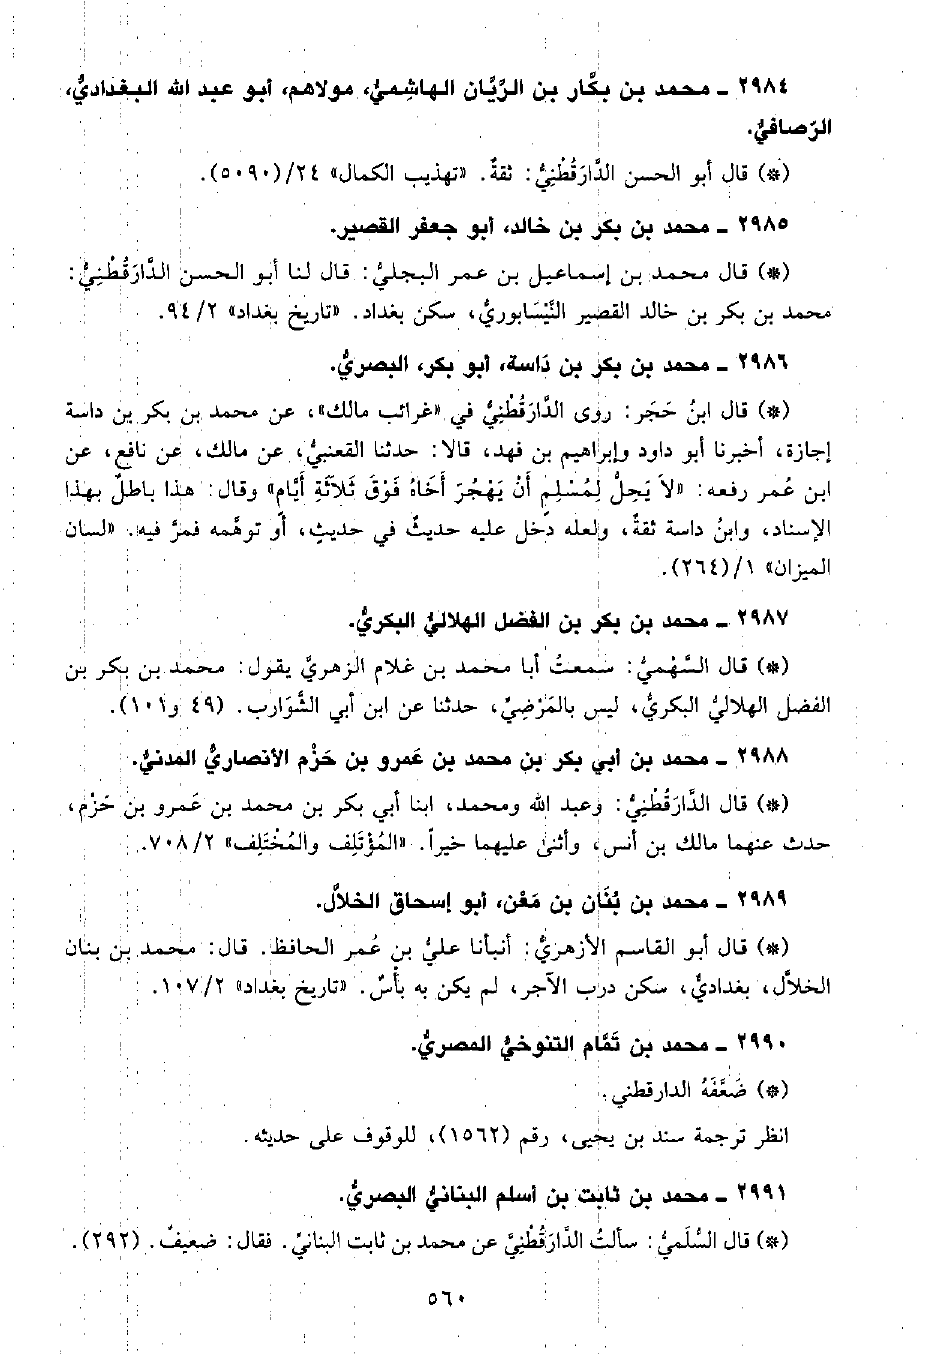 ٢٩٨٤ ـ محمد بن بكَّار بن الرَّيَّان الهاشِميُّ، مولاهم، أبو عبد الله البغداديُّ،
الرّصافيُّ.
(*) قال أبو الحسن الدَّارَقُطْنِيُّ: ثقةٌ. «تهذيب الكمال» ٢٤/(٥٠٩٠).
٢٩٨٥ ـ محمد بن بكر بن خالد، أبو جعفر القصير.
(*) قال محمد بن إسماعيل بن عمر البجليُّ: قال لنا أبو الحسن الدَّارَقُطْنِيُّ:
محمد بن بكر بن خالد القصير النَّيْسَابوريُّ، سكن بغداد. «تاريخ بغداد» ٢/ ٩٤.
٢٩٨٦ ـ محمد بن بكر بن دَاسة، أبو بكر، البصريُّ.
(*) قال ابنُ حَجَر: روى الدَّارَقُطْنِيُّ في «غرائب مالك»، عن محمد بن بكر بن داسة
إجازة، أخبرنا أبو داود وإبراهيم بن فهد، قالا: حدثنا القعنبيُّ، عن مالك، عن نافع، عن
ابن عُمر رفعه: «لاَ يَحِلُّ لِمُسْلِمٍ أَنْ يَهْجُرَ أَخَاهُ فَوْقَ ثَلاَثَةِ أَيَّامٍ» وقال: هذا باطلٌ بهذا
الإسناد، وابنُ داسة ثقةٌ، ولعله دخل عليه حديثٌ في حديثٍ، أو توهَّمه فمرَّ فيه. «لسان
الميزان» ١/(٢٦٤).
٢٩٨٧ ـ محمد بن بكر بن الفضل الهلاليُّ البكريُّ.
(*) قال السَّهْميُّ: سمعتُ أبا محمد بن غلام الزهريَّ يقول: محمد بن بكر بن
الفضل الهلاليُّ البكريُّ، ليس بالمَرْضِيِّ، حدثنا عن ابن أبي الشَّوَارب. (٤٩ و١٠١).
٢٩٨٨ ـ محمد بن أبي بكر بن محمد بن عَمرو بن حَزْم الأنصاريُّ المدنيُّ.
(*) قال الدَّارَقُطْنِيُّ: وعبد الله ومحمد، ابنا أبي بكر بن محمد بن عَمرو بن حَزْم،
حدث عنهما مالك بن أنس، وأثنى عليهما خيراً. «المُؤتَلِف والمُخْتَلِف» ٢/ ٧٠٨.
٢٩٨٩ ـ محمد بن بُنَان بن مَعْن، أبو إسحاق الخلاَّل.
(*) قال أبو القاسم الأزهريُّ: أنبأنا عليُّ بن عُمر الحافظ. قال: محمد بن بنان
الخلاَّل، بغداديُّ، سكن درب الآجر، لم يكن به بأسٌ. «تاريخ بغداد» ٢/ ١٠٧.
٢٩٩٠ ـ محمد بن تَمَّام التنوخيُّ المصريُّ.
(*) ضَعَّفَهُ الدارقطني.
انظر ترجمة سند بن يحيى، رقم (١٥٦٢)، للوقوف على حديثه.
٢٩٩١ ـ محمد بن ثابت بن أسلم البنانيُّ البصريُّ.
(*) قال السُّلَميُّ: سألتُ الدَّارَقُطْنِيَّ عن محمد بن ثابت البنانيِّ. فقال: ضعيفٌ. (٢٩٢).
٥٦٠